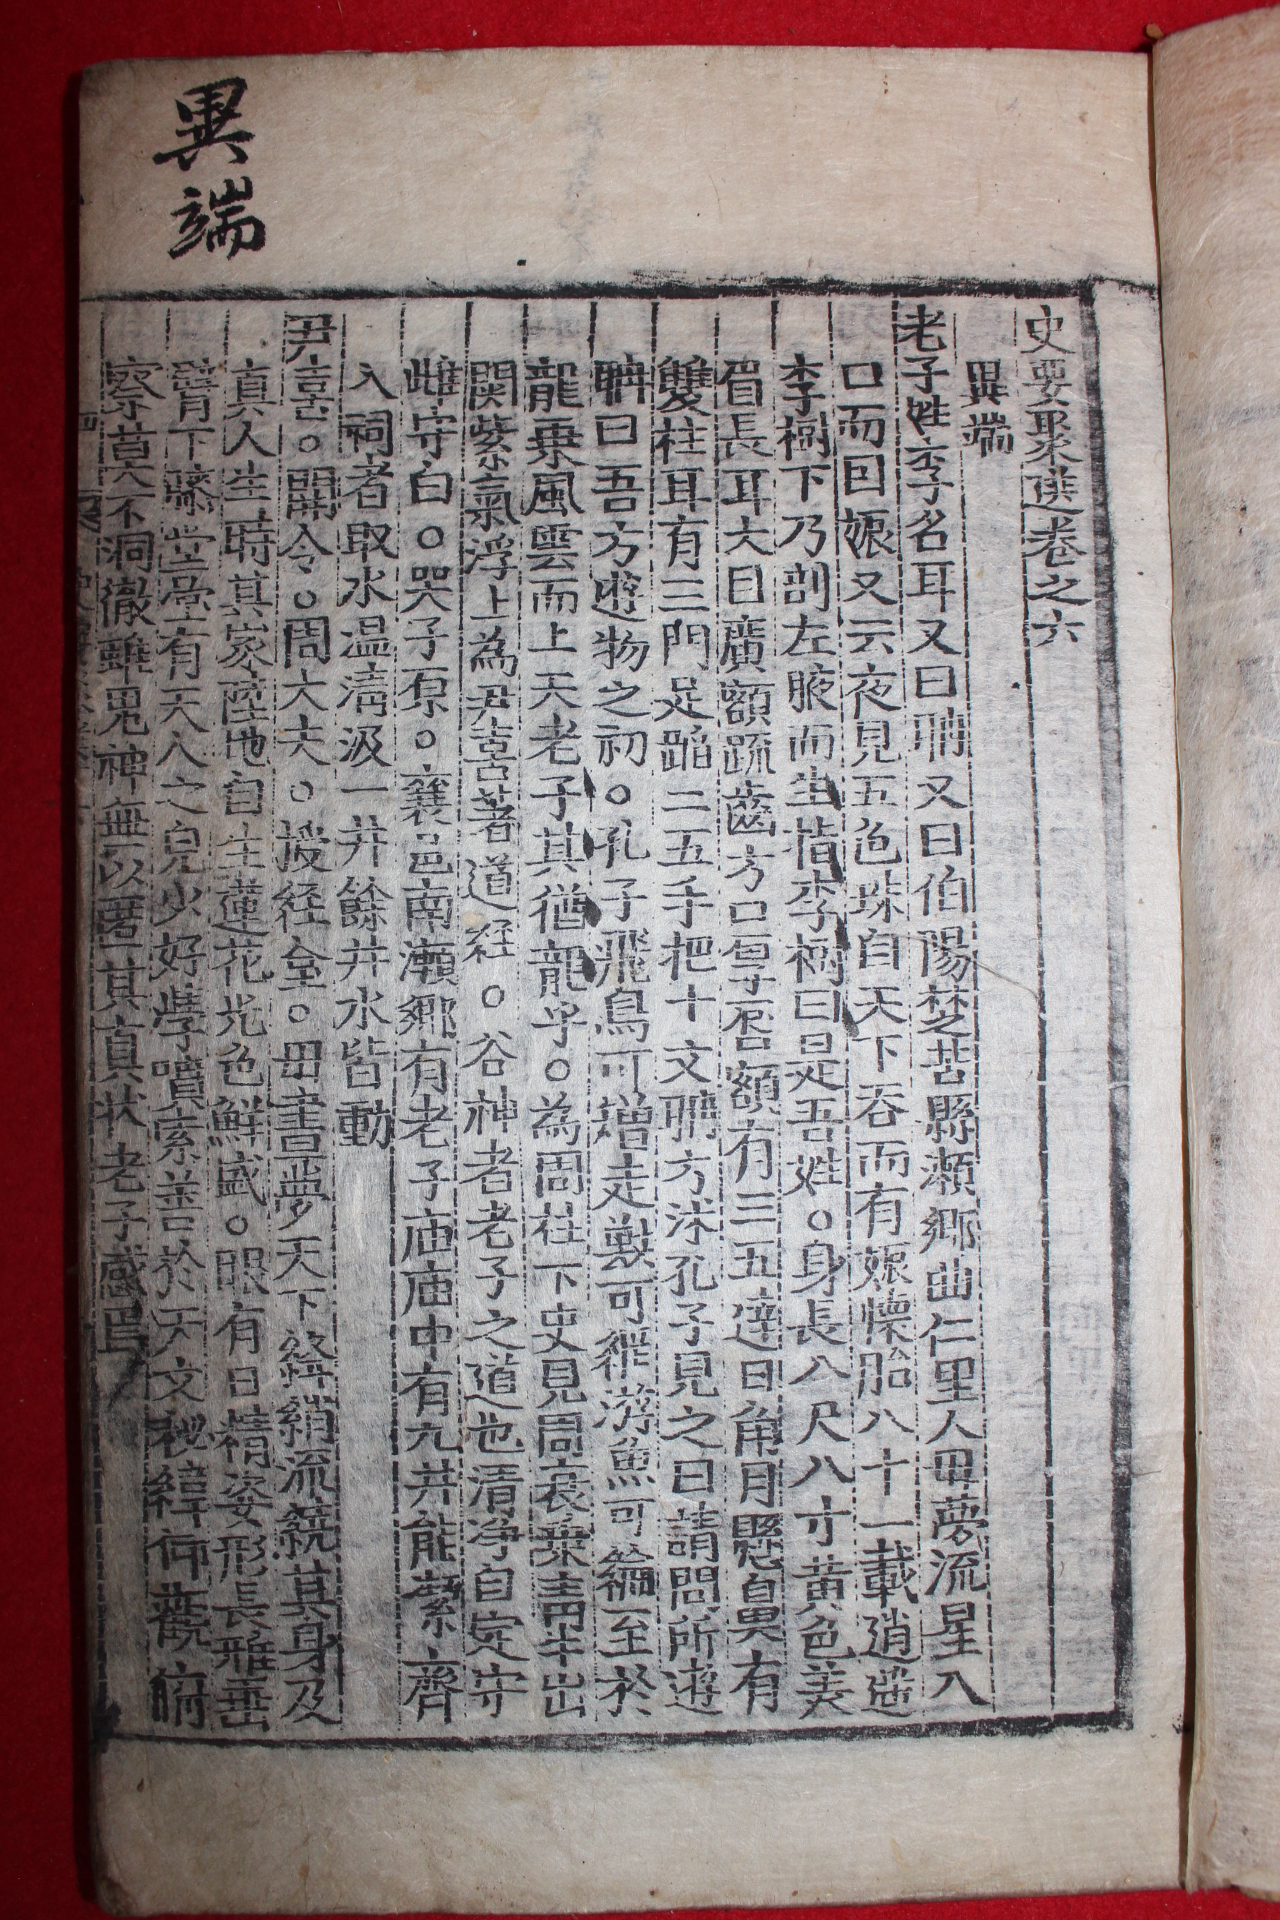 異端
史要聚選卷之六
異端
老子姓李名耳又曰聃又曰伯陽楚苦縣瀬郷曲仁里人毋夢流星入
口而回娠又云夜見五色珠自天下吞而有娠懐胎八十一載逍遥
李樹下乃剖左腋而生指李樹曰是吾姓○身長八尺八寸黃色美
眉長耳大目廣額踈齒方口厚唇額有三五達日角月懸鼻有
雙柱耳有三門足蹈二五手把十文聃方沐孔子見之曰請問所逰
聃曰吾方逰物之初○孔子飛鳥可增走獸可維游魚可綸至於
龍乗風雲而上天老子其猶龍乎○為周柱下史見周衰乗靑牛出
関紫氣浮上為尹喜著道経○谷神者老子之道也清浄自定守
雌守白○哭子原○襄邑南瀬郷有老子庙庙中有九井能潔齋
入祠者取水温清汲一井餘井水皆動
尹喜○關令○周大夫○授経台○毋晝夢天下絳綃流繞其身及
真人生時其家陸地自生蓮花光色鮮盛○眼有日精姿形長雅垂
臂下膝堂堂有天人之皃少好學墳索善於天文秘緯仰觀俯
察莫不洞徹雖鬼神無以匿其真状老子感焉